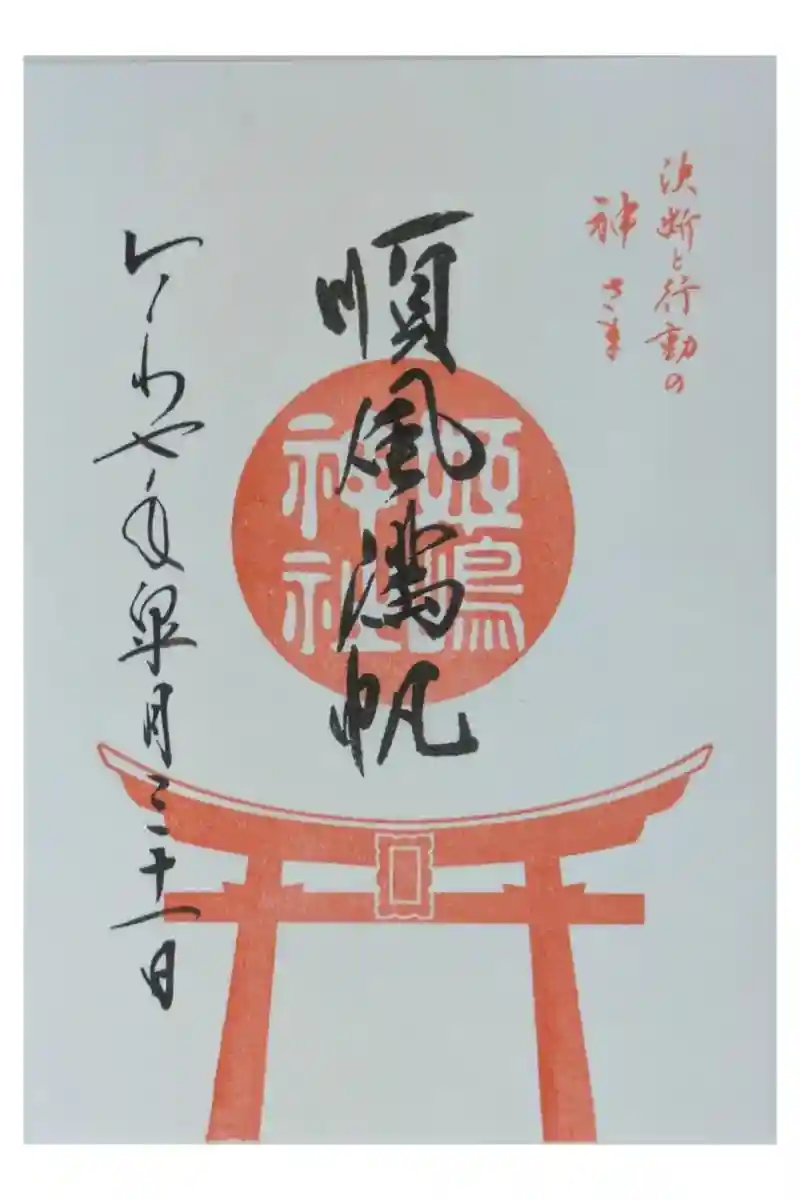 決断と行動の
神さま
順風満帆
姫嶋
神社
令わ七年皐月三十一日